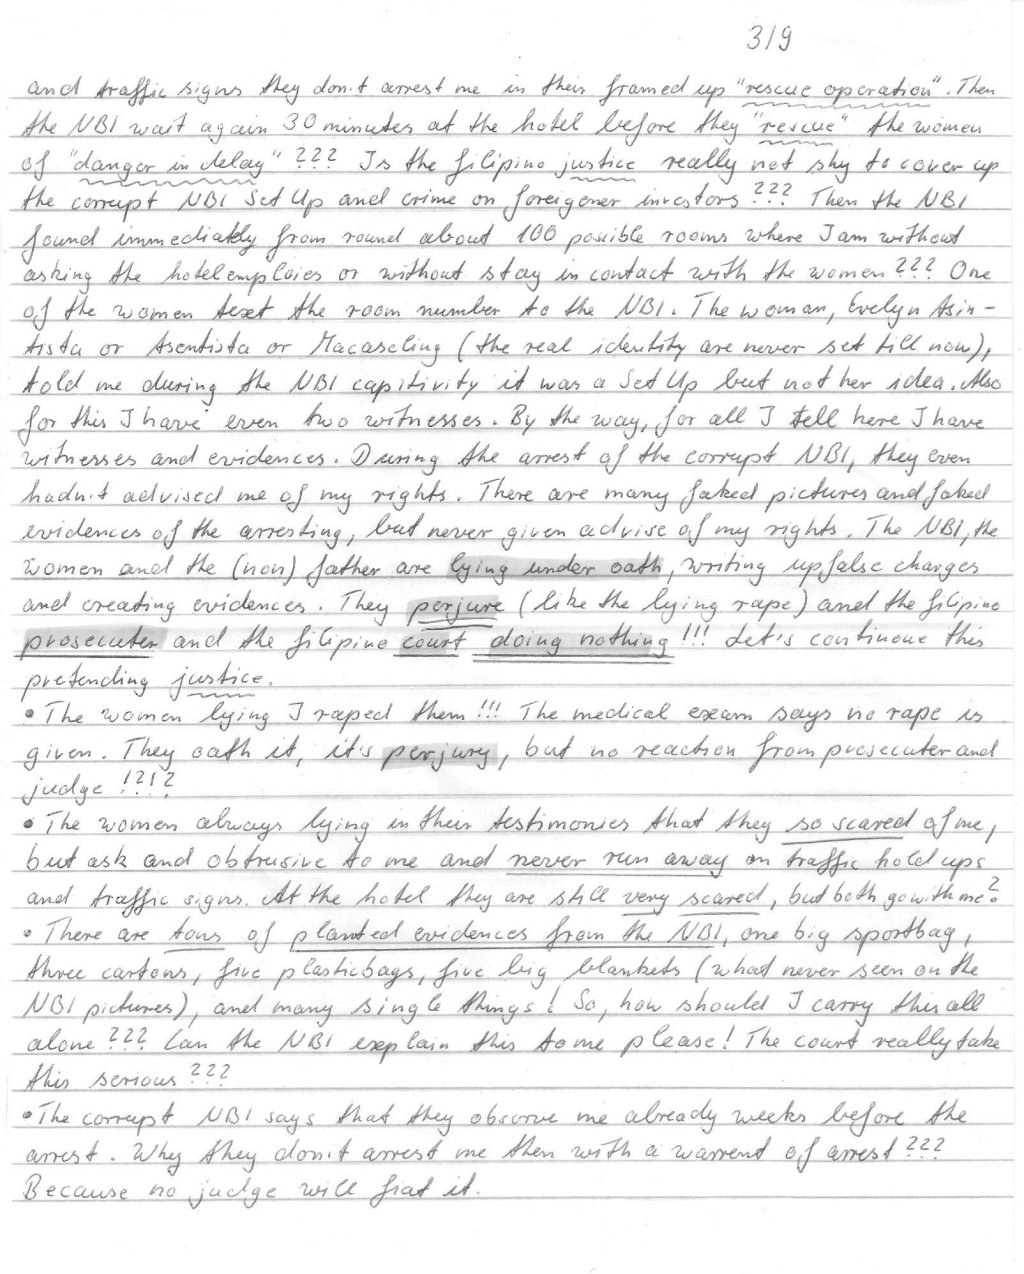 3/9
and traffic signs they don't arrest me in their framed up "rescue operation". Then
the NBI wait again 30 minutes at the hotel before they "rescue" the women
of "danger in delay" ??? Is the filipino justice really not shy to cover up
the corrupt NBI Set Up and crime on foreigener investors ??? Then the NBI
found immediately from round about 100 possible rooms where I am without
asking the hotel emploies or without stay in contact with the women ??? One
of the women text the room number to the NBI. The woman, Evelyn Asin-
tista or Asentista or Macaseling (the real identity are never set till now),
told me during the NBI capitivity it was a Set Up but not her idea. Also
for this I have even two witnesses. By the way, for all I tell here I have
witnesses and evidences. During the arrest of the corrupt NBI, they even
hadn't advised me of my rights. There are many faked pictures and faked
evidences of the arresting, but never given advise of my rights. The NBI, the
women and the (non) father are lying under oath, writing up false charges
and creating evidences. They perjure (like the lying rape) and the filipino
prosecuter and the filipino court doing nothing !!! Let's continoue this
pretending justice.
• The women lying I raped them !!! The medical exam says no rape is
given. They oath it, it's perjury, but no reaction from prosecuter and
judge !?!?
• The women always lying in their testimonies that they so scared of me,
but ask and obtrusive to me and never run away on traffic hold ups
and traffic signs. At the hotel they are still very scared, but both go with me?
• There are tons of planted evidences from the NBI, one big sportbag,
three cartons, five plasticbags, five big blankets (what never seen on the
NBI pictures), and many single things! So, how should I carry this all
alone ??? Can the NBI explain this to me please! The court really take
this serious ???
• The corrupt NBI says that they observe me already weeks before the
arrest. Why they don't arrest me then with a warrent of arrest ???
Because no judge will fiat it.